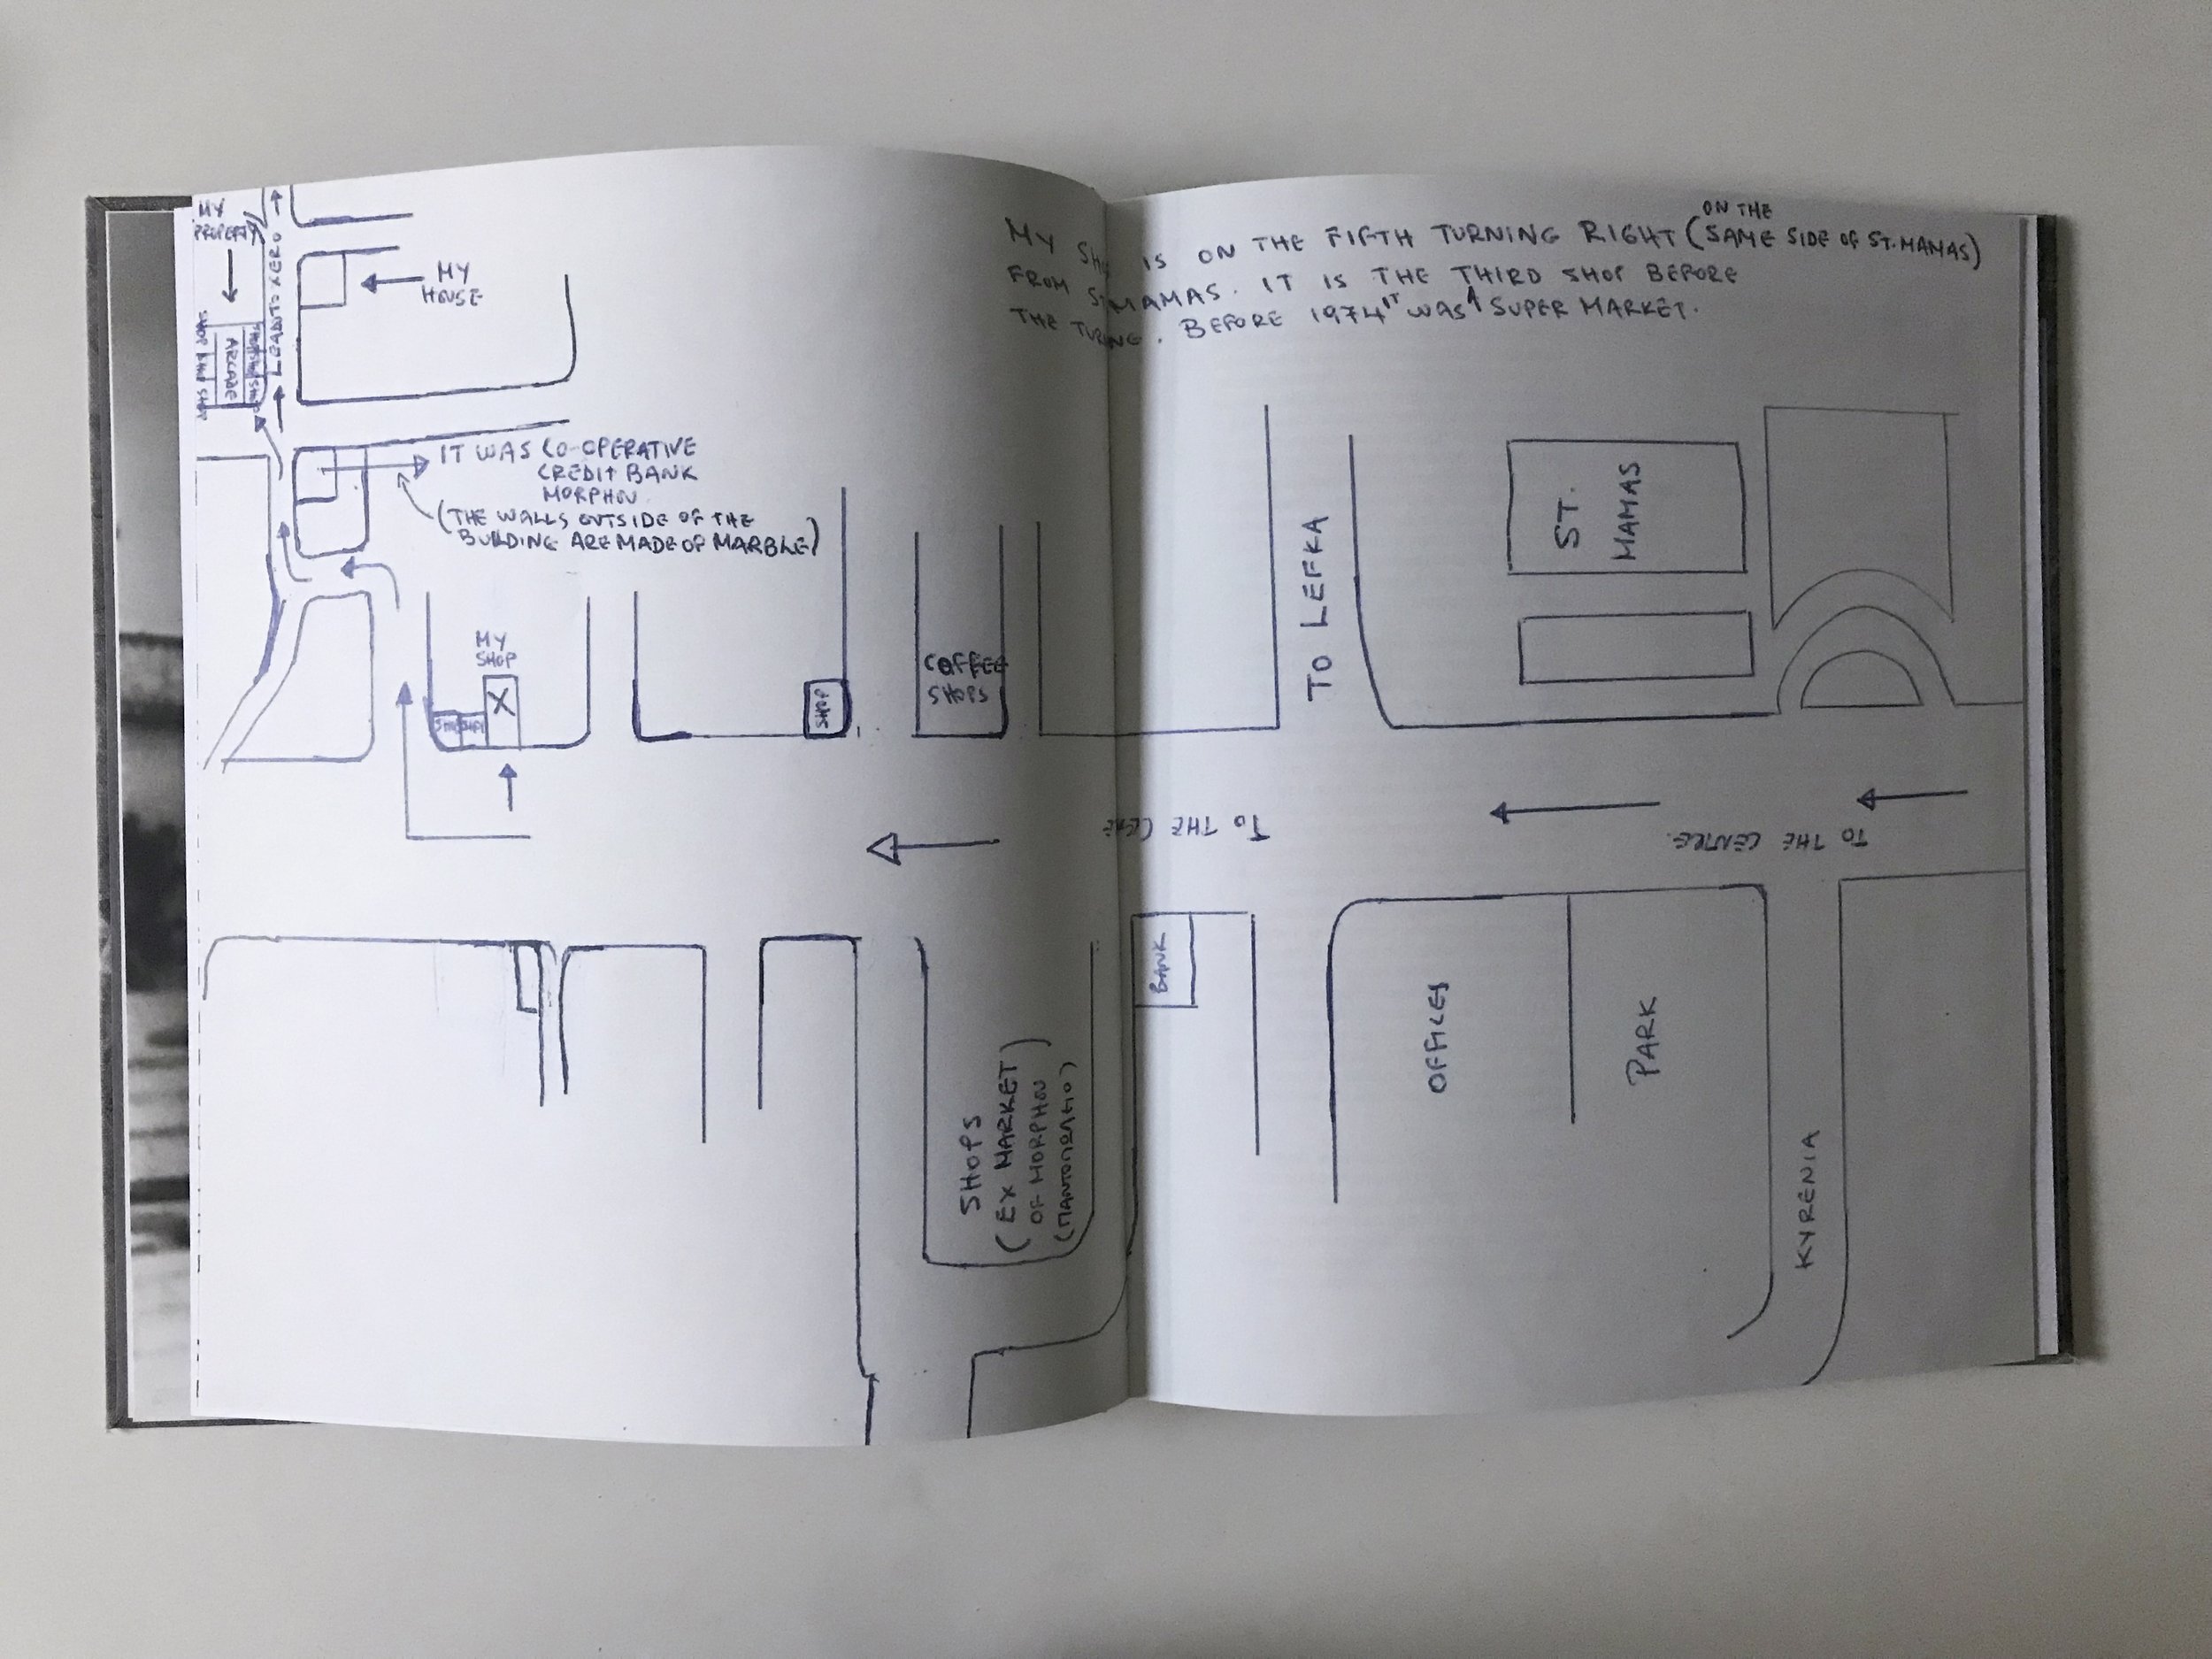 MY IS ON THE FIFTH TURNING RIGHT (ON THE SAME SIDE OF ST. MAMAS)
FROM MAMAS. IT IS THE THIRD SHOP BEFORE
THE . BEFORE 1974 IT WAS A SUPER MARKET.
MY
PROPERTY
LEADS TO XERO
MY
HOUSE
SHOP
ARCADE
IT WAS CO-OPERATIVE
CREDIT BANK
MORPHOU
(THE WALLS OUTSIDE OF THE
BUILDING ARE MADE OF MARBLE)
MY
SHOP
X
SHOP
COFFEE
SHOPS
TO LEFKA
ST.
MAMAS
TO THE
TO THE CENTRE.
SHOPS
(EX MARKET)
OF MORPHOU
(ΠΑΝΤΟΠΩΛΕΙΟ)
BANK
OFFICES
PARK
KYRENIA